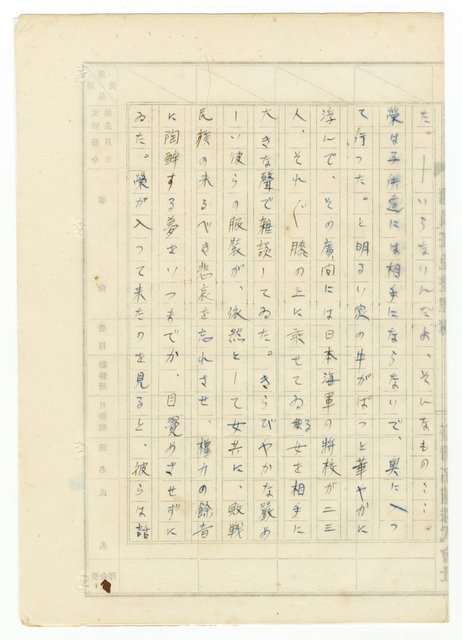 た。―いらないんだよ、そんなもの…。
榮は子供達には相手にならないで、奥に入つ
て行つた。と明るい家の中がぱつと華やかに
浮んで、その廣間には日本海軍の将校が二三
人、それ〴〵膝の上に乘せてゐる女を相手に
大きな聲で雜談してゐた。きらびやかな嚴め
しい彼らの服裝が、依然として女共に、敗戰
民族の来るべき悲哀を忘れさせ、權力の餘香
に陶酔する夢をいつまでか、目覺めさせずに
ゐた。榮が入つて来たのを見ると、彼らは話